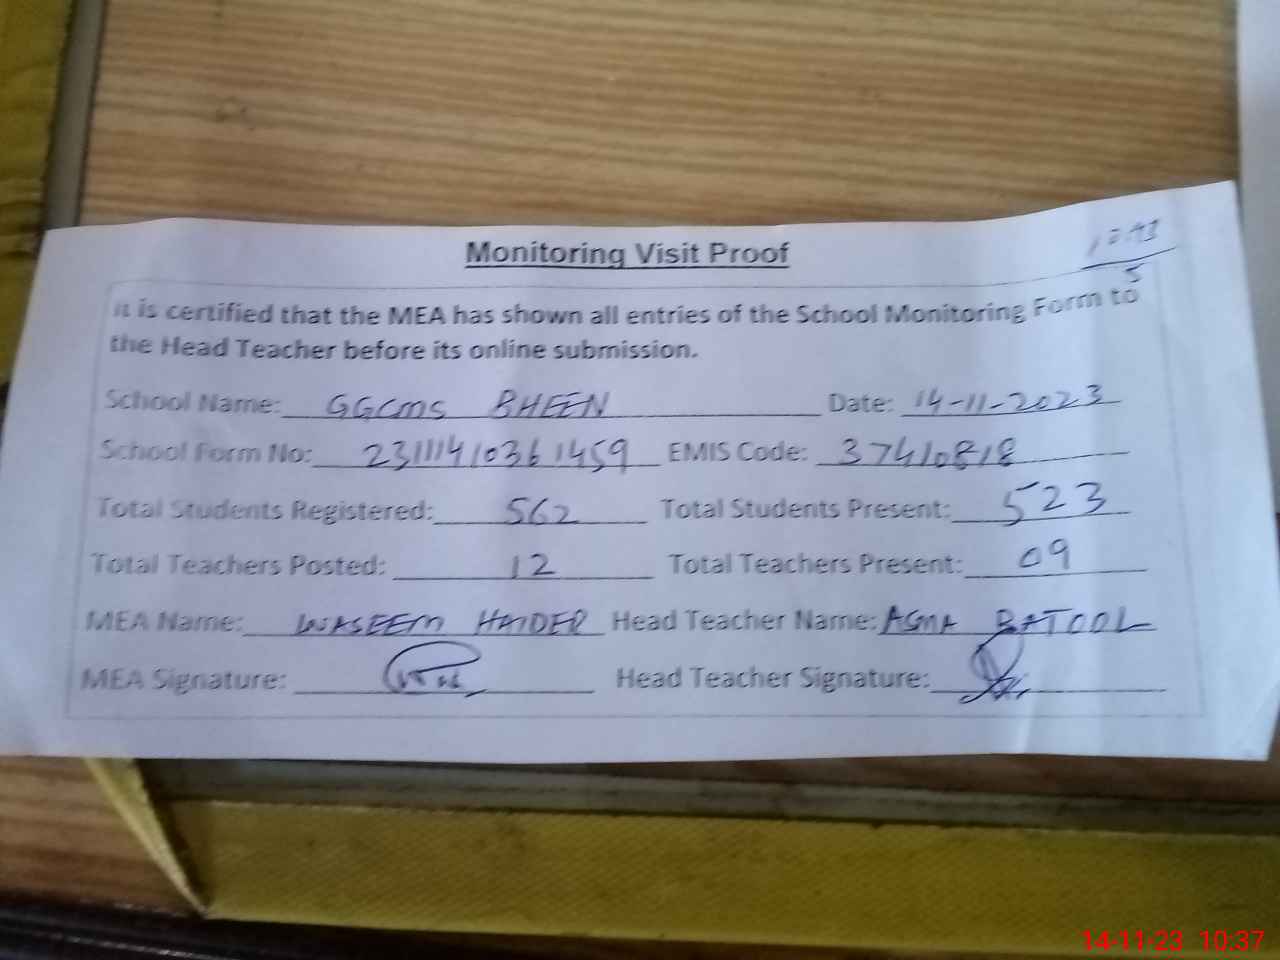 Monitoring Visit Proof
5
It is certified that the MEA has shown all entries of the School Monitoring Form to
the Head Teacher before its online submission.
School Name: GGCMS BHEEN Date: 14-11-2023
School Form No: 23111410361459 EMIS Code: 37410818
Total Students Registered: 562 Total Students Present: 523
Total Teachers Posted: 12 Total Teachers Present: 09
MEA Name: WASEEM HAIDER Head Teacher Name: ASMA BATOOL
MEA Signature: Head Teacher Signature:
14-11-23 10:37